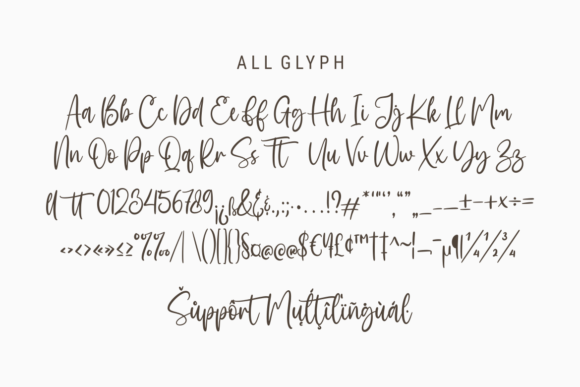 ALL GLYPH
Aa Bb Cc Dd Ee Ff Gg Hh Ii Jj Kk Ll Mm
Nn Oo Pp Qq Rr Ss Tt Uu Vv Ww Xx Yy Zz
tt 0123456789¡¿ß&.,:;·…!?#*"'‘’“”‚„_–—±−+×÷=
‹›<>«»≤≥°%‰/|\()[]{}§¤@©®$€¥£¢™†‡^~¦¬¯µ¶¼½¾
Šůppôrt Mųťţîlïñġùál